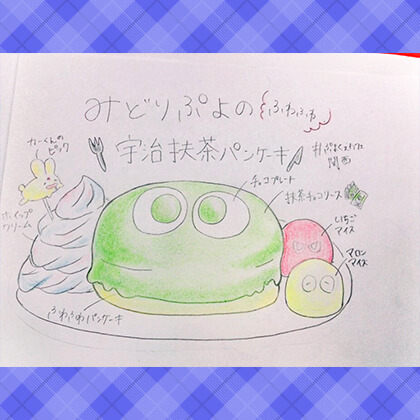 みどりぷよの
ふわふわ
宇治抹茶パンケーキ
#ぷよくえカフェ
関西
かーくんの
ピック
ホイップ
クリーム
チョコプレート
抹茶チョコソース
いちご
アイス
マロン
アイス
ふわふわパンケーキ